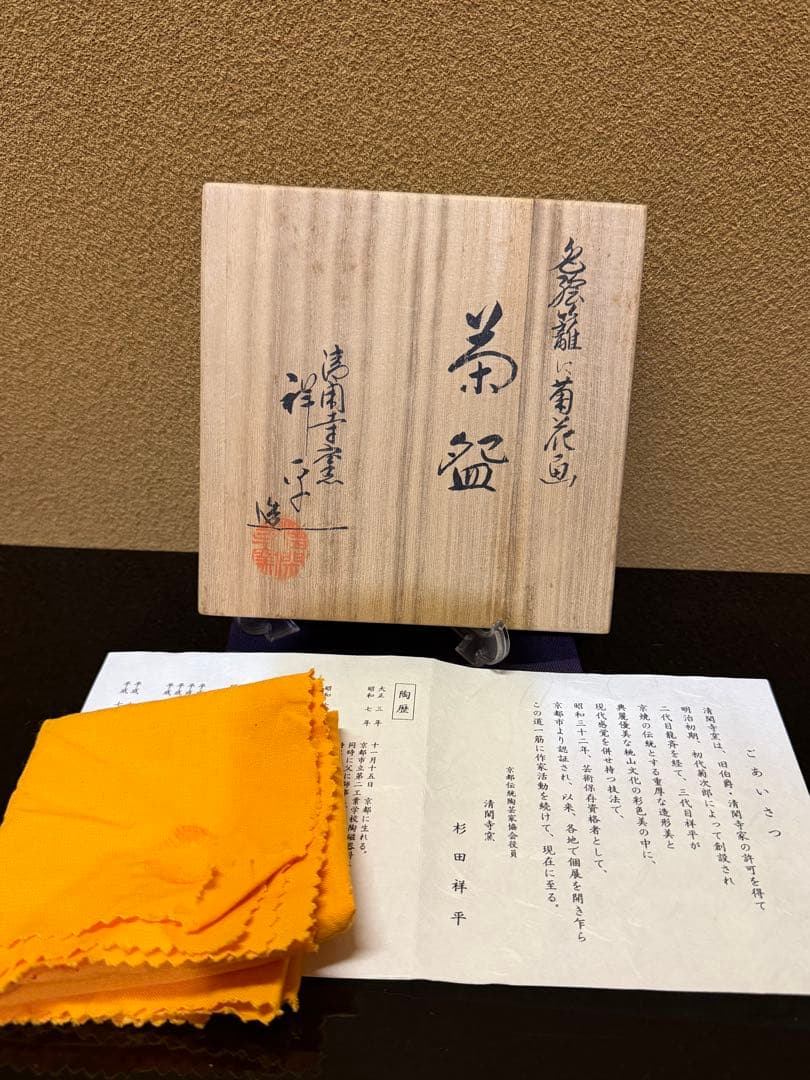 色絵籬に菊花画
茶盌
清閑寺窯
祥平造
ごあいさつ
清閑寺窯は、旧伯爵・清閑寺家の許可を得て
明治初期、初代菊次郎によって創設され
二代目龍斉を経て、三代目祥平が
京焼の伝統とする重厚な造形美と
典麗優美な桃山文化の彩色美の中に、
現代感覚を併せ持つ技法で、
昭和三十二年、芸術保存資格者として、
京都市より認証され、以来、各地で個展を開き乍ら
この道一筋に作家活動を続けて、現在に至る。
京都伝統陶芸家協会役員
清閑寺窯
杉田祥平
陶歴
大正三年 十一月十五日 京都に生れる。
昭和七年 京都市立第二工業学校陶磁器科
同時に父に師事
昭和
平成
平成
平成
平成
平成
平成 七